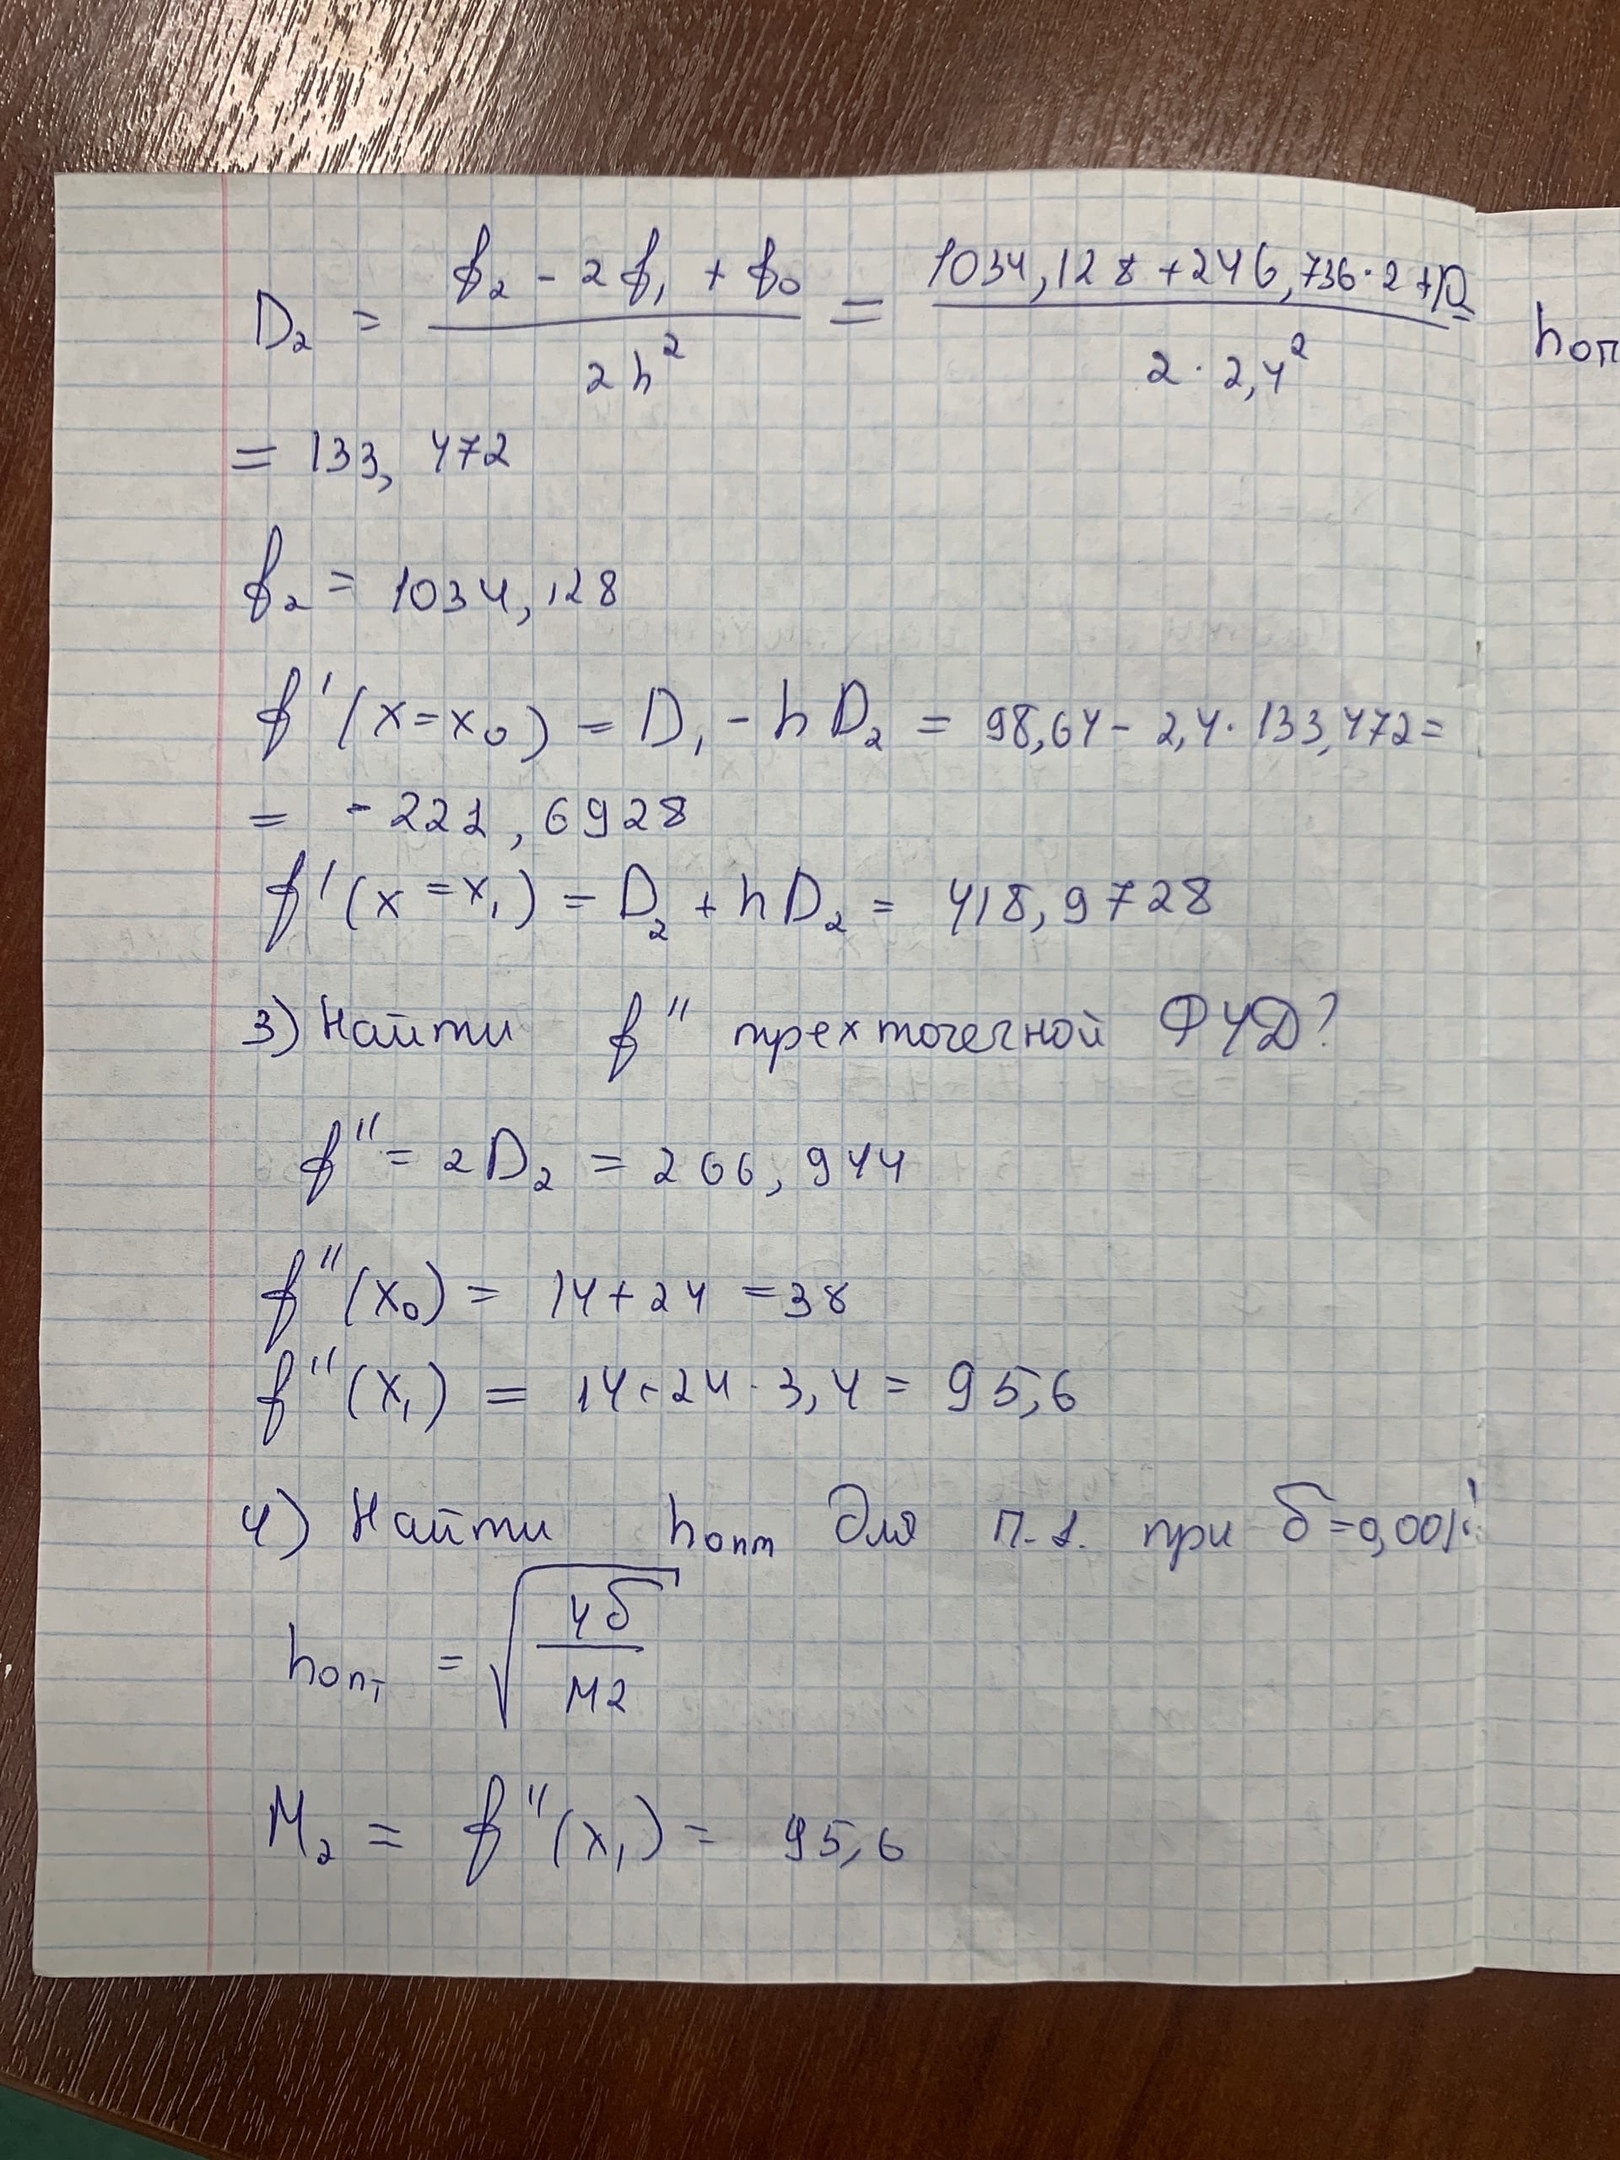 D₂ = (f₂ - 2f₁ + f₀) / (2h²) = (1034,128 + 246,736·2 + 10) / (2 · 2,4²) =
= 133,472
f₂ = 1034,128
f'(x=x₀) = D₁ - hD₂ = 98,64 - 2,4·133,472 =
= -221,6928
f'(x=x₁) = D₂ + hD₂ = 418,9728
3) Найти f'' трехточечной ФЧД?
f'' = 2D₂ = 266,944
f''(x₀) = 14+24 = 38
f''(x₁) = 14+24·3,4 = 95,6
4) Найти hопт для п.1. при δ=0,001
hопт = √(4δ / M2)
M₂ = f''(x₁) = 95,6
hоп